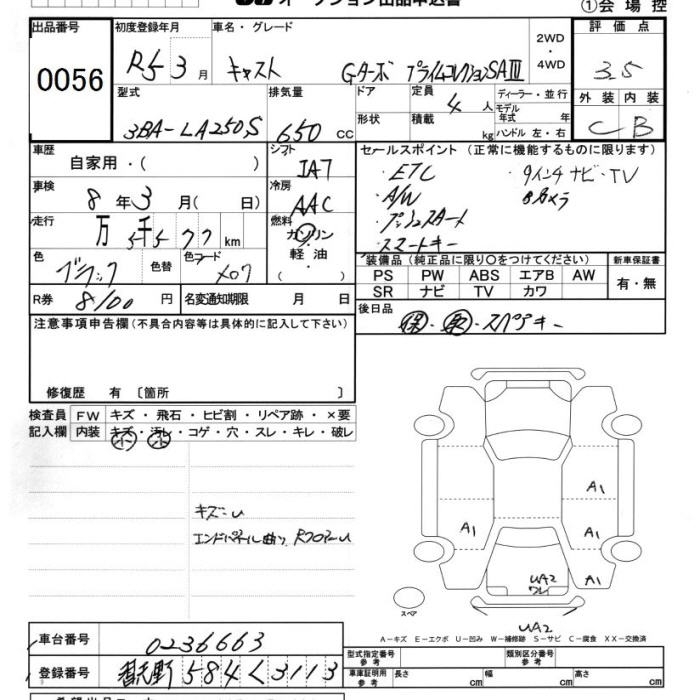 ①会場控
出品番号
0056
初度登録年月
R5 3月
車名・グレード
キャスト Gターボ プライムコレクションSAⅢ
2WD
・
4WD
評価点
3.5
型式
3BA-LA250S
排気量
650 cc
ドア
形状
定員
4人
積載
kg
ディーラー・並行
モデル
年式 年
ハンドル 左・右
外装 内装
C B
車歴
自家用・( )
シフト
IA7
車検
8年3月( 日)
冷房
AAC
走行
万 5千577km
燃料
ガソリン
・
軽油
・
( )
色
ブラック
色替
色コード
X07
R券
8100円
名変通知期限 月 日
セールスポイント (正常に機能するものに限ります)
・ETC ・9インチナビ・TV
・A/W ・Bカメラ
・プッシュスタート
・スマートキー
装備品 (純正品に限り○をつけてください)
PS PW ABS エアB AW
SR ナビ TV カワ
新車保証書
有・無
後日品
保・取・スペアキー
注意事項申告欄 (不具合内容等は具体的に記入して下さい)
修復歴 有 〔箇所 〕
検査員
記入欄
FW キズ・飛石・ヒビ割・リペア跡・×要
内装 キズ・汚レ・コゲ・穴・スレ・キレ・破レ
小 小
キズ=U
エンドパネル曲り、RフロアーU
A1
A1
A1
A1
UA2
ワレ
UA2
スペア
A-キズ E-エクボ U-凹み W-補修跡 S-サビ C-腐食 XX-交換済
車台番号
0236663
登録番号
584く3113
型式指定番号
参考
類別区分番号
参考
車庫証明用
参考
長さ cm 幅 cm 高さ cm